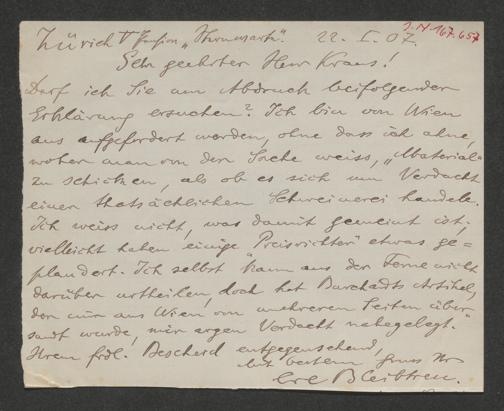 J.N 167.657
Zürich V Pension „Thornwarte“. 22. I. 07.
Sehr geehrter Herr Kraus!
Darf ich Sie um Abdruck beifolgender
Erklärung ersuchen? Ich bin von Wien
aus aufgefordert worden, ohne dass ich ahne,
woher man von der Sache weiss, „Material“
zu schicken, als ob es sich um Verdacht
einer thatsächlichen Schweinerei handele.
Ich weiss nicht, was damit gemeint ist;
vielleicht haben einige „Preisrichter“ etwas ge=
plaudert. Ich selbst kann aus der Ferne nicht
darüber urtheilen, doch hat Burchardts Artikel,
der mir aus Wien von mehreren Seiten über-
sandt wurde, mir argen Verdacht nahegelegt.
Ihrem frdl. Bescheid entgegensehend,
mit bestem Gruss Ihr
Bleibtreu.